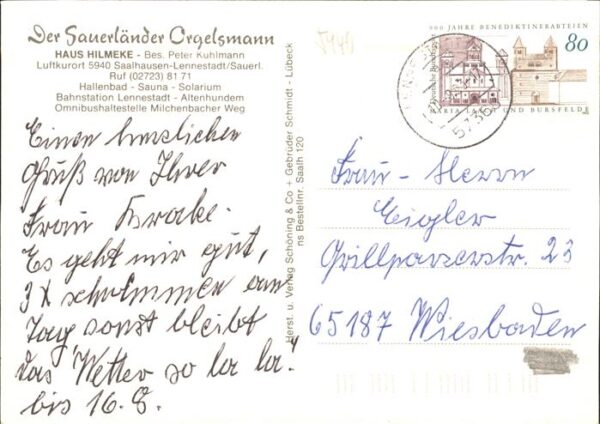 Der Sauerländer Orgelsmann
HAUS HILMEKE - Bes. Peter Kuhlmann
Luftkurort 5940 Saalhausen-Lennestadt/Sauerl.
Ruf (02723) 81 71
Hallenbad - Sauna - Solarium
Bahnstation Lennestadt - Altenhundem
Omnibushaltestelle Milchenbacher Weg
Einen herzlichen
Gruß von Ihrer
Frau Krake.
Es geht mir gut,
3 X schwimmen am
Tag, sonst bleibt
das Wetter so la la."
bis 16.8.
Herst. u. Verlag Schöning & Co + Gebrüder Schmidt - Lübeck
ns Bestellnr. Saalh 120
900 JAHRE BENEDIKTINERABTEIEN
80
MARIA LAACH UND BURSFELDE
Frau - Herrn
Eigler
Grillparzerstr. 23
65187 Wiesbaden